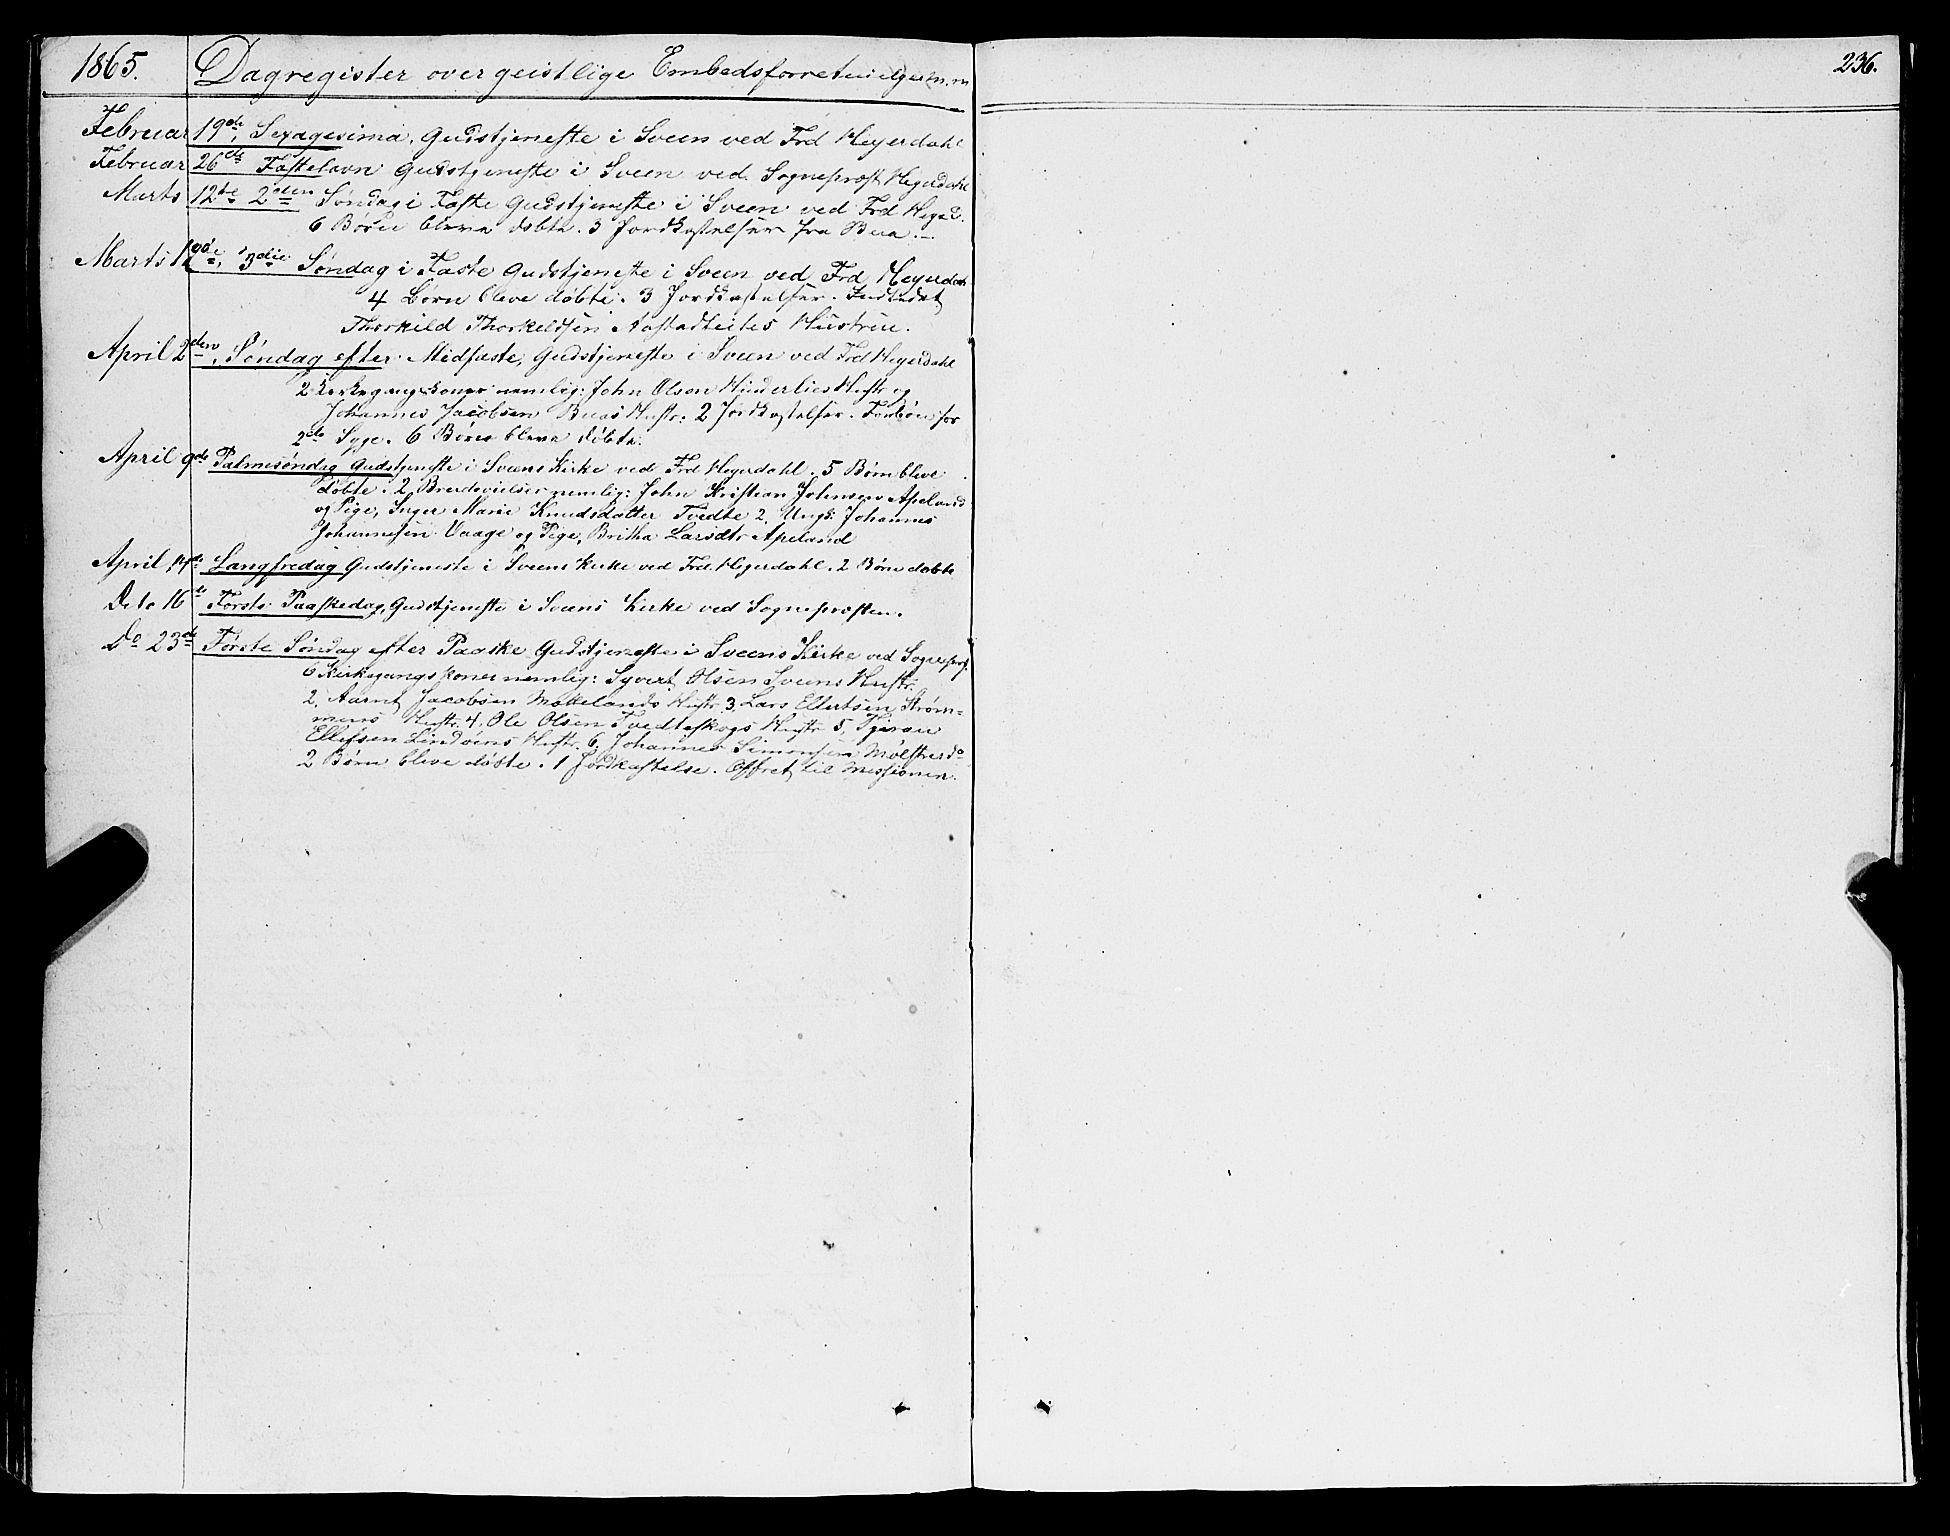 1865. Dagregister over geistlige Embedsforretninger m. m
236.
Februar 19de Sexagesima, Gudstjeneste i Sveen ved Frd Heyerdahl
Februar 26de Fastelavn Gudstjeneste i Sveen ved Sognepræst Heyerdahl
Marts 12te 2den Søndag i Faste Gudstjeneste i Sveen ved Frd Heyed.
6 Børn bleve døbte. 3 Jordkastelser fra Bua.
Marts 19de, 3die Søndag i Faste Gudstjeneste i Sveen ved Frd Heyerdahl
4 Børn bleve døbte. 3 Jordkastelser. Indledet
Thorkild Thorkeldsen Hustrue.
April 2den, Søndag efter Midfaste, Gudstjeneste i Sveen ved Frd Heyerdahl
2 Kirkegangskoner nemlig: John Olsen Hinderlies Hustr og
Johannes Jacobsen Buas Hustr: 2 Jordkastelser. Forbøn for
2de Syge. 6 Børn bleve døbte.
April 9de Palmesøndag Gudstjeneste i Sveens Kirke ved Frd Heyerdahl. 5 Børn bleve
døbte. 2 Brudevielser nemlig: John Kristian Johnsen Apeland
og Pige, Inger Marie Knudsdatter Tvedte 2, Ungk: Johannes
Johannesen Vaage og Pige, Britha Larsdtr Apeland
April 14de Langfredag Gudstjeneste i Sveens Kirke ved Frd. Heyerdahl. 2 Børn døbte
Dito 16de Første Paaskedag, Gudstjeneste i Sveens Kirke ved Sognepræsten.
Do 23de Første Søndag efter Paaske Gudstjeneste i Sveens Kirke ved Sognepræst.
6 Kirkegangskoner nemlig: Syvert Olsen Sveens Hustr.
2, Aamt Jacobsen Møttelands Hustr 3, Lars Ellertsen Strøm=
mens Hustr. 4, Ole Olsen Tvedteskogs Hustr 5,
Ellefsen Lindøens Hustr. 6, Johannes Simonsen Mølstres do
2 Børn bleve døbte. 1 Jordkastelse. Offret til Missionen.